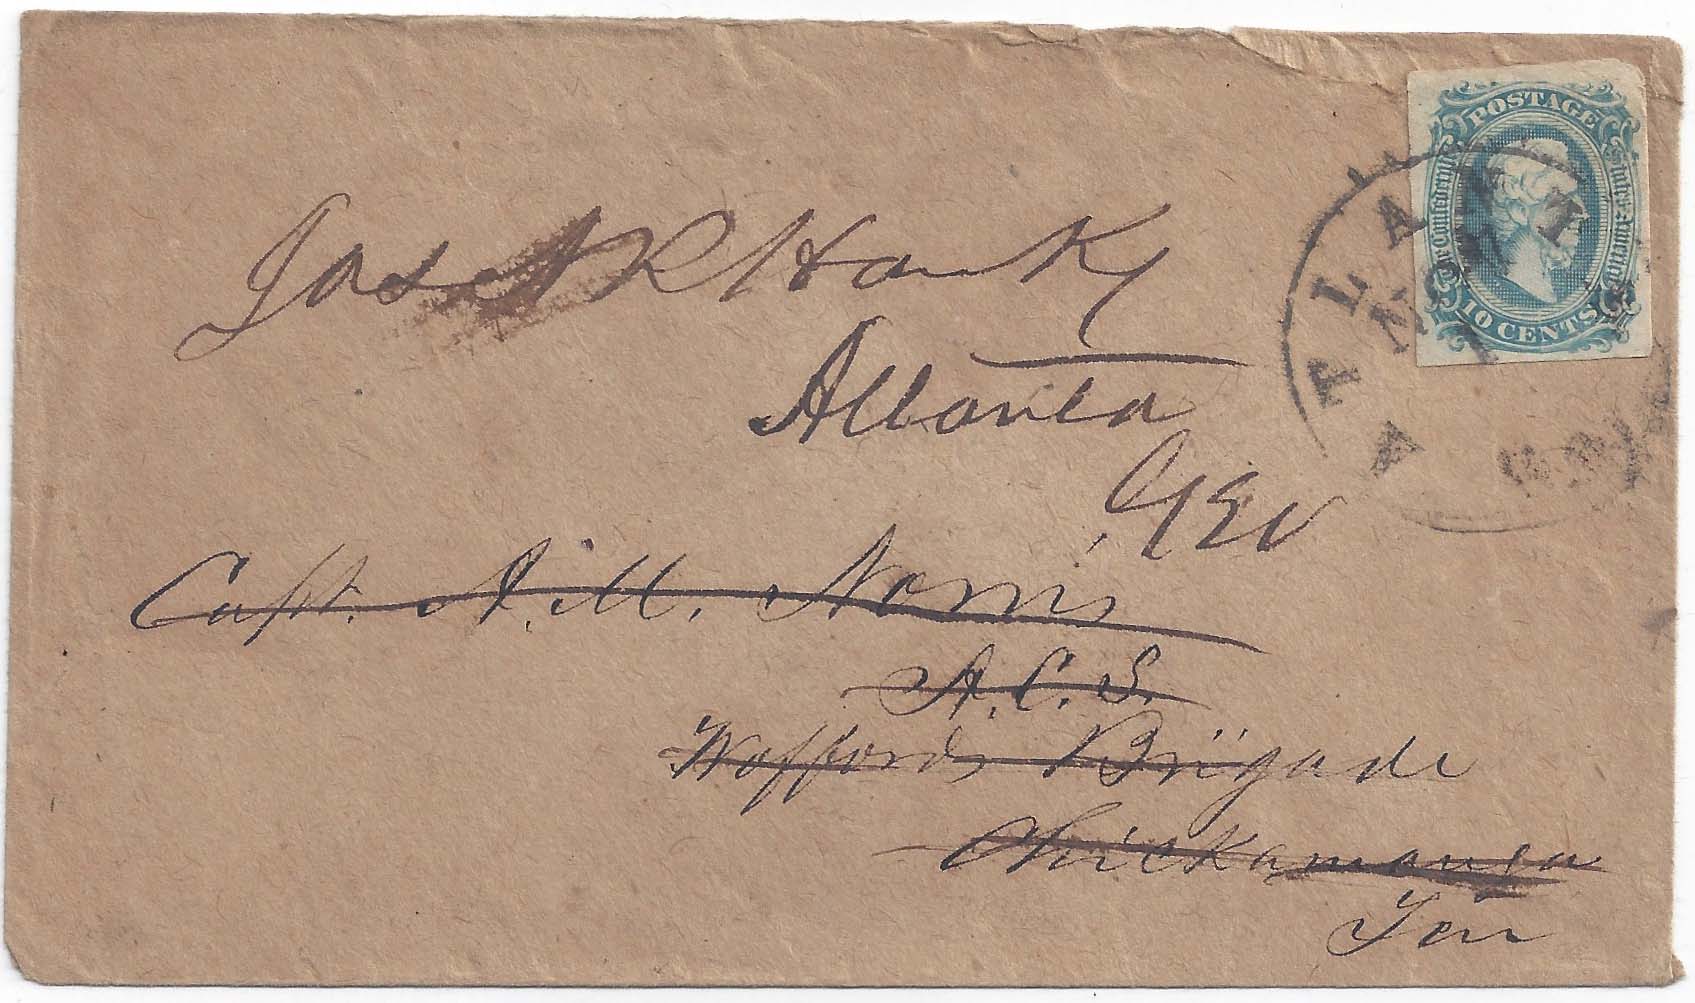 POSTAGE
The Confederate States of America
10 CENTS
ATLANTA
NOV
Atlanta
Geo
Capt. A. M. Norris
A. C. S.
Woffords Brigade
Chickamauga
Ten